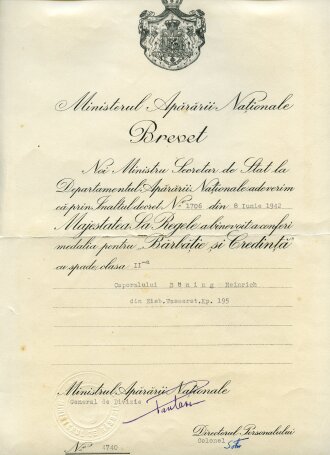 Ministerul Apărării Naționale
Brevet
Noi Ministru Secretar de Stat la
Departamentul Apărării Naționale adeverim
că prin Înaltul decret Nº 1706 din 8 Iunie 1942
Majestatea Sa Regele a binevoit a conferi
medalia pentru „Bărbăție și Credință”
cu spade clasa II-a
Caporalului Böning Heinrich
din Eisb. Kp. 195
Ministrul Apărării Naționale
General de Divizie
Directorul Personalului
Colonel
Nº 4740